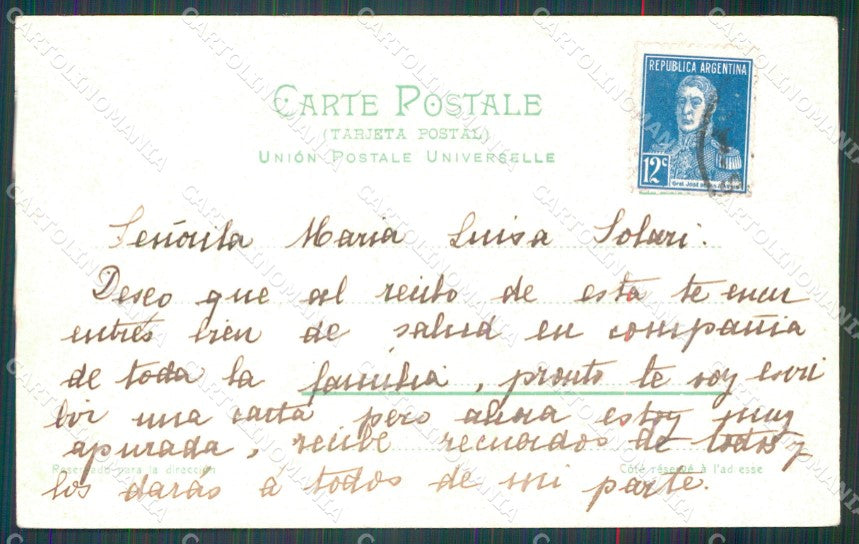 CARTE POSTALE
(TARJETA POSTAL)
UNIÓN POSTALE UNIVERSELLE
REPUBLICA ARGENTINA
12c
Gral José
Señorita Maria Luisa Solari.
Deseo que al recibo de esta te encu
entres bien de salud en compañia
de toda la familia, pronto te voy escri
bir una carta pero ahora estoy muy
apurada, recibe recuerdos de todos y
Reservado para la dirección
Côté réservé à l'ad esse
los darás á todos de mi parte.
CARTOLINOMANIA